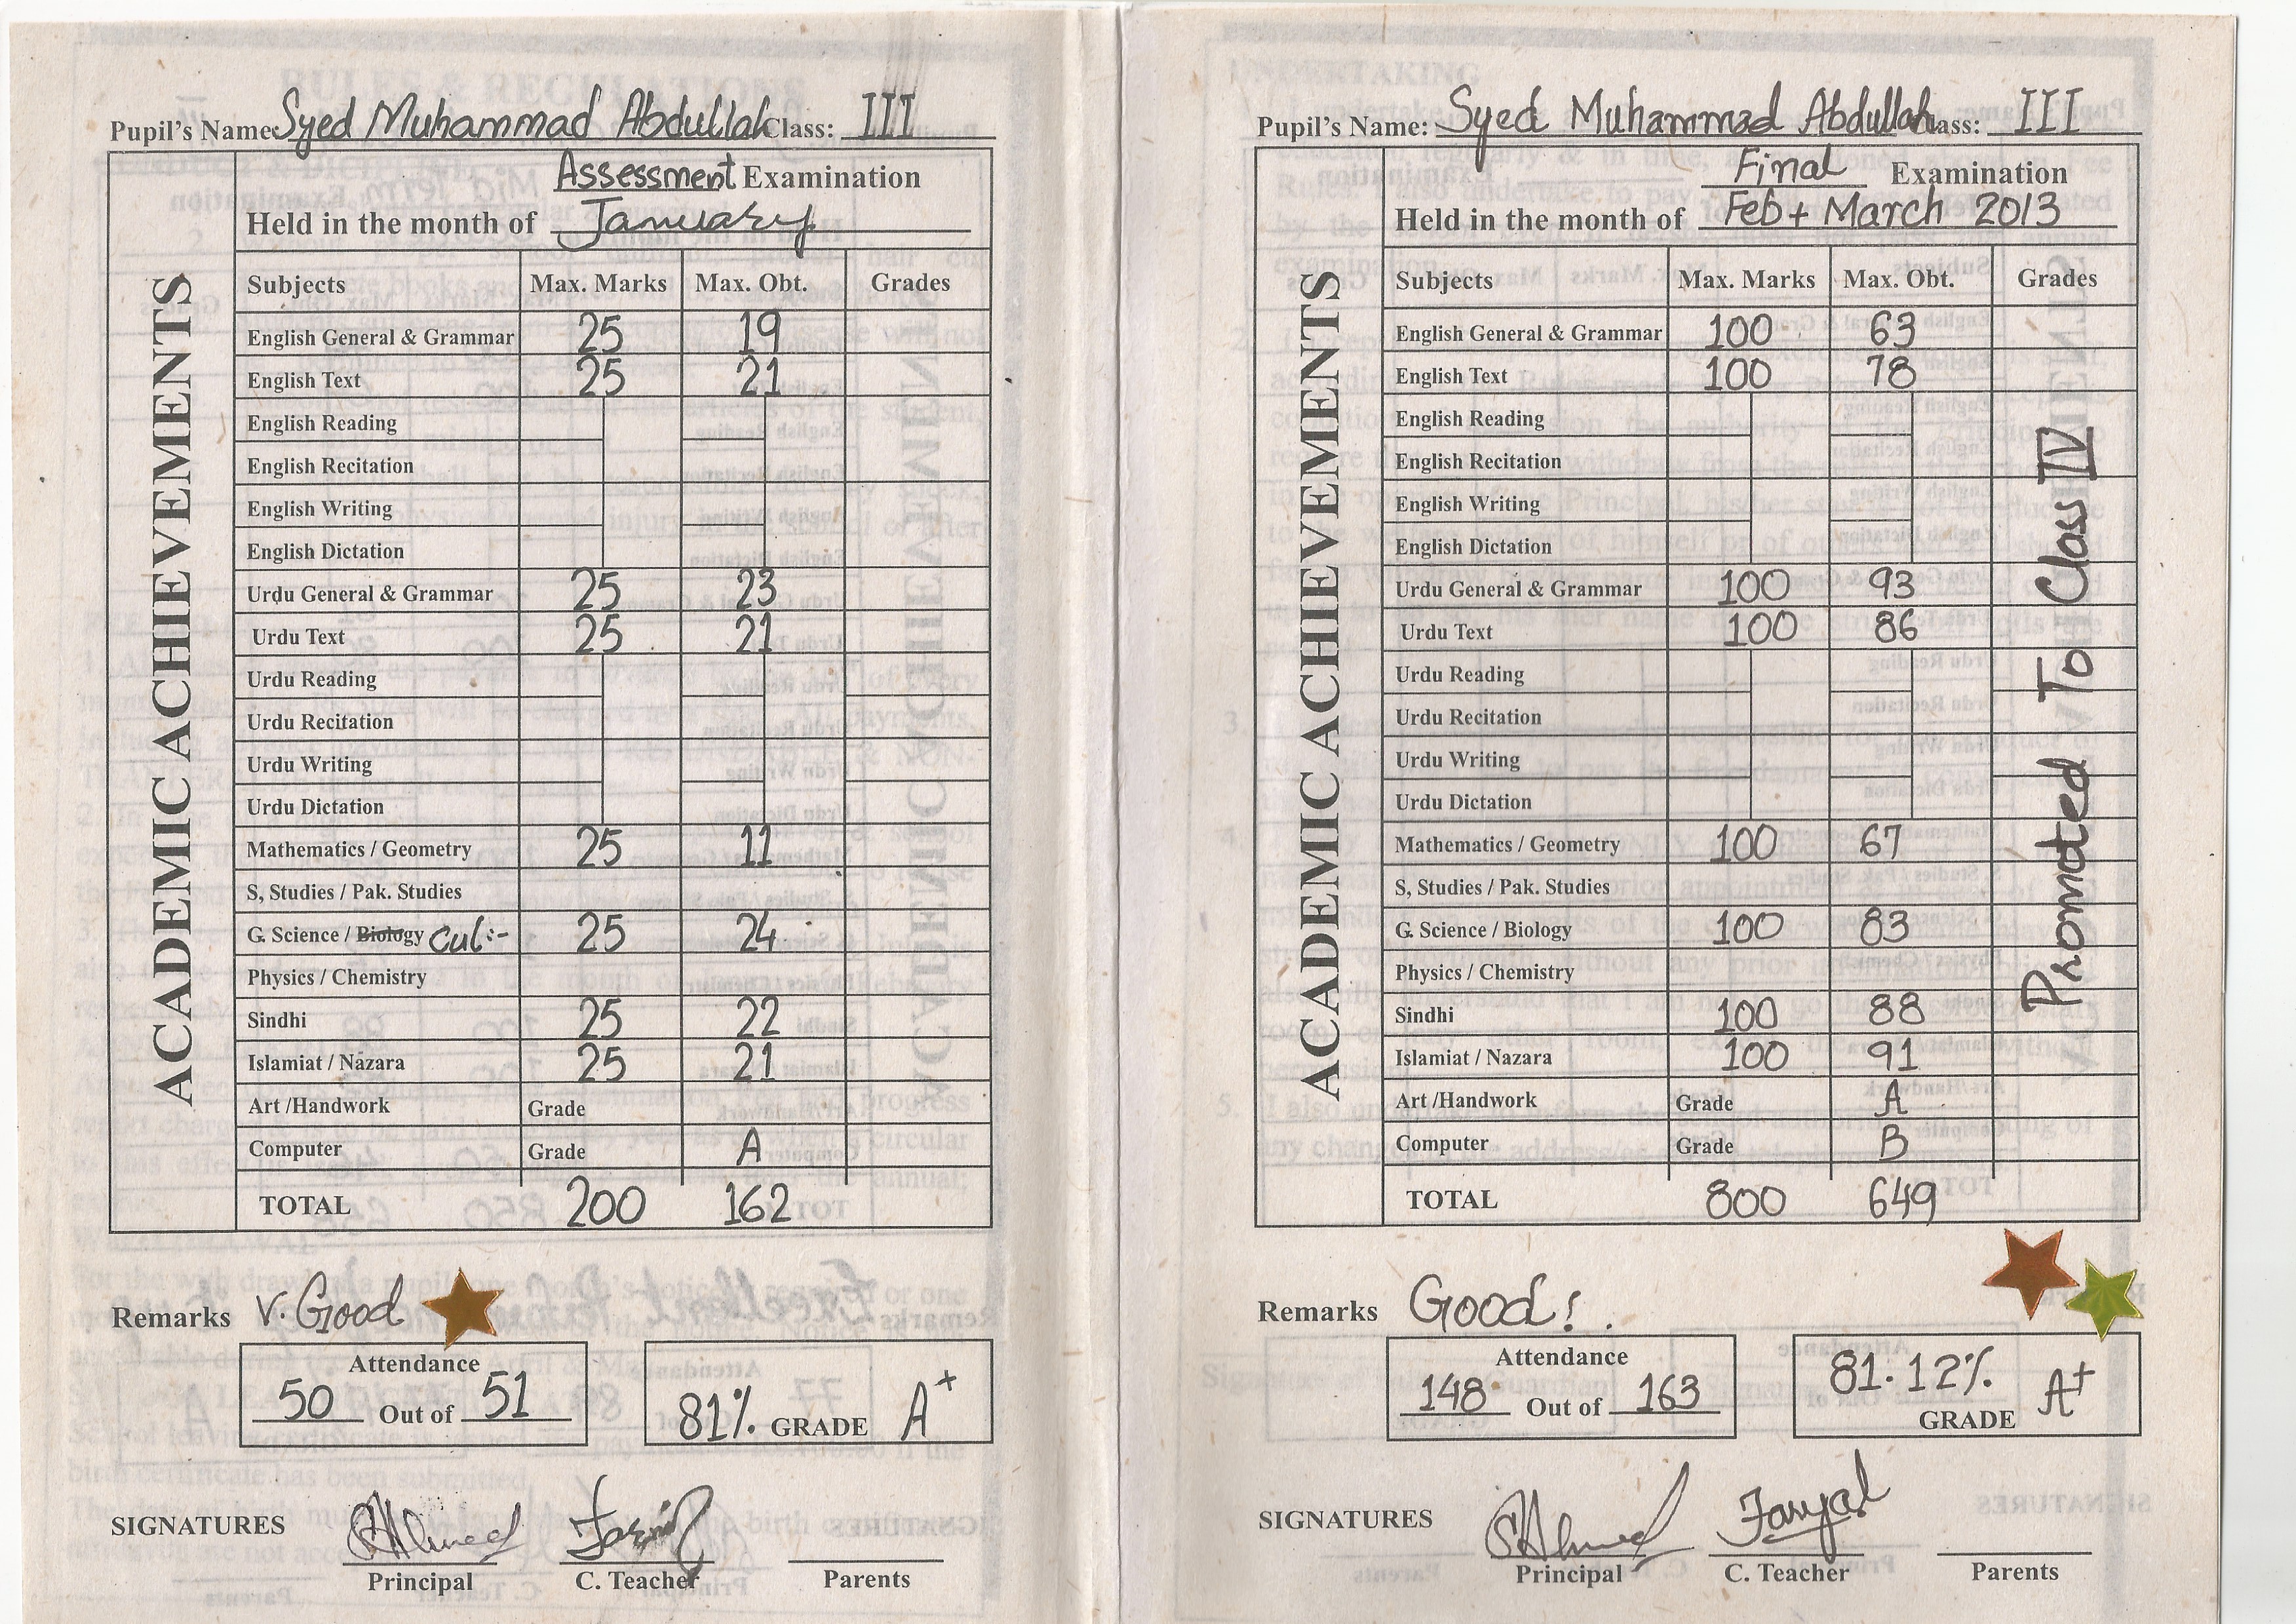 Pupil's Name: Syed Muhammad Abdullah Class: III
Assessment Examination
Held in the month of January
ACADEMIC ACHIEVEMENTS
Subjects Max. Marks Max. Obt. Grades
English General & Grammar 25 19
English Text 25 21
English Reading
English Recitation
English Writing
English Dictation
Urdu General & Grammar 25 23
Urdu Text 25 21
Urdu Reading
Urdu Recitation
Urdu Writing
Urdu Dictation
Mathematics / Geometry 25 11
S, Studies / Pak. Studies
G. Science / Biology Cul:- 25 24
Physics / Chemistry
Sindhi 25 22
Islamiat / Nazara 25 21
Art /Handwork Grade
Computer Grade A
TOTAL 200 162
Remarks V. Good
Attendance
50 Out of 51
81% GRADE A+
SIGNATURES
Principal C. Teacher Parents
Pupil's Name: Syed Muhammad Abdullah Class: III
Final Examination
Held in the month of Feb + March 2013
ACADEMIC ACHIEVEMENTS
Subjects Max. Marks Max. Obt. Grades
English General & Grammar 100 63
English Text 100 78
English Reading
English Recitation
English Writing
English Dictation
Urdu General & Grammar 100 93
Urdu Text 100 86
Urdu Reading
Urdu Recitation
Urdu Writing
Urdu Dictation
Mathematics / Geometry 100 67
S, Studies / Pak. Studies
G. Science / Biology 100 83
Physics / Chemistry
Sindhi 100 88
Islamiat / Nazara 100 91
Art /Handwork Grade A
Computer Grade B
TOTAL 800 649
Promoted To Class IV
Remarks Good!.
Attendance
148 Out of 163
81.12% GRADE A+
SIGNATURES
SAhmed Faryal
Principal C. Teacher Parents